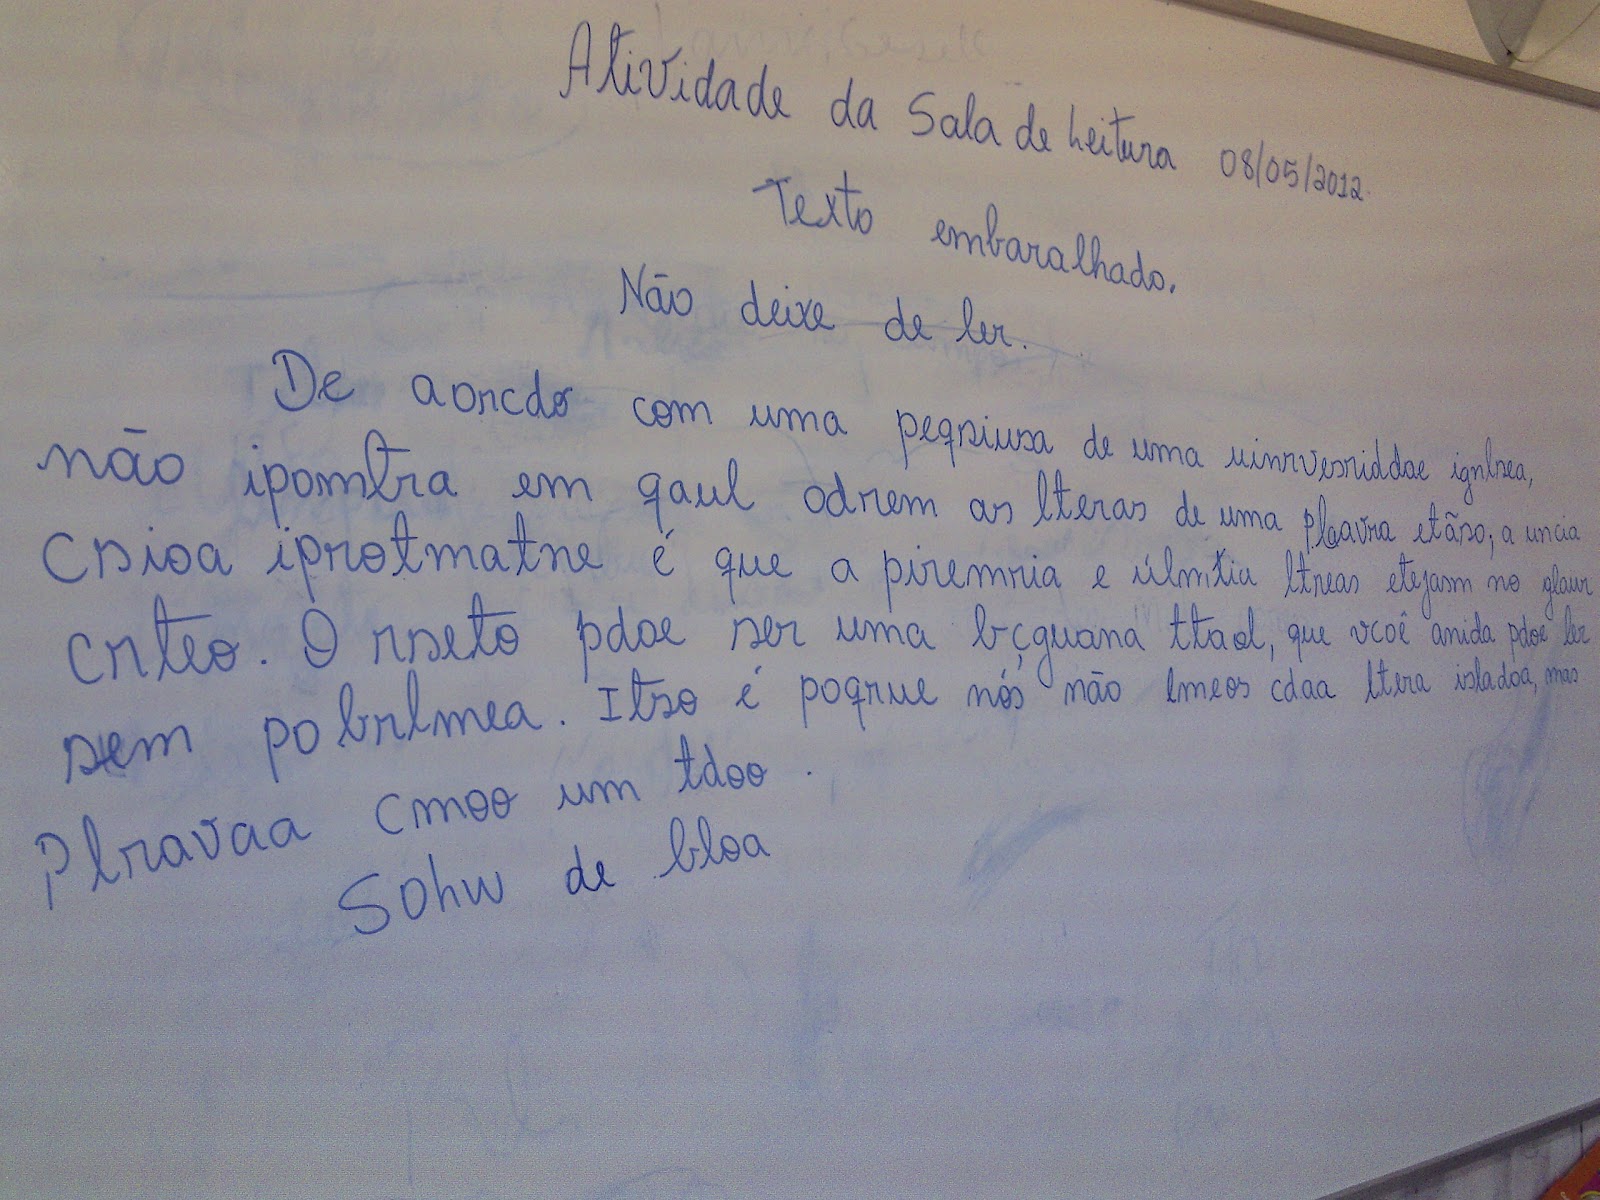 Atividade da Sala de Leitura 08/05/2012.
Texto embaralhado.
Não deixe de ler.
De aorcdo com uma peqsiusa de uma uinrvesriddae ignlsea,
não ipomtra em qaul odrem as lteras de uma plaavra etãso, a uncia
csioa iprotmatne é que a piremria e úlmtia ltreas etejasm no glaur
crteo. O rseto pdoe ser uma bçguana ttaol, que vcoê anida pdoe ler
sem pobrlmea. Itso é poqrue nós não lmeos cdaa ltera isladoa, mas
Plravaa cmoo um tdoo.
Sohw de bloa